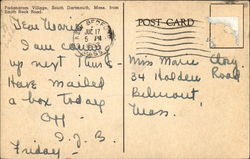 Padanaram Village, South Dartmouth, Mass. from
Smith Neck Road.
POST CARD
JUN 17
5 PM
Dear Marie
I am coming
up next Tues-
Have mailed
a box today
Off -
Friday -
Miss Marie Clay
34 Holden Road
Belmont
Mass.